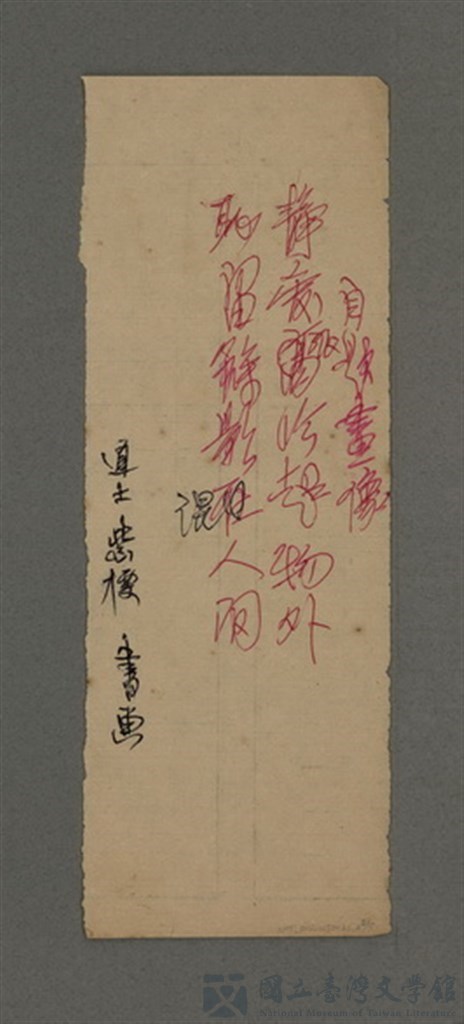 自題畫像
靜處醫吟超物外
恥留餘影在人間
混世
道士 紫樓 書画
國立臺灣文學館
National Museum of Taiwan Literature